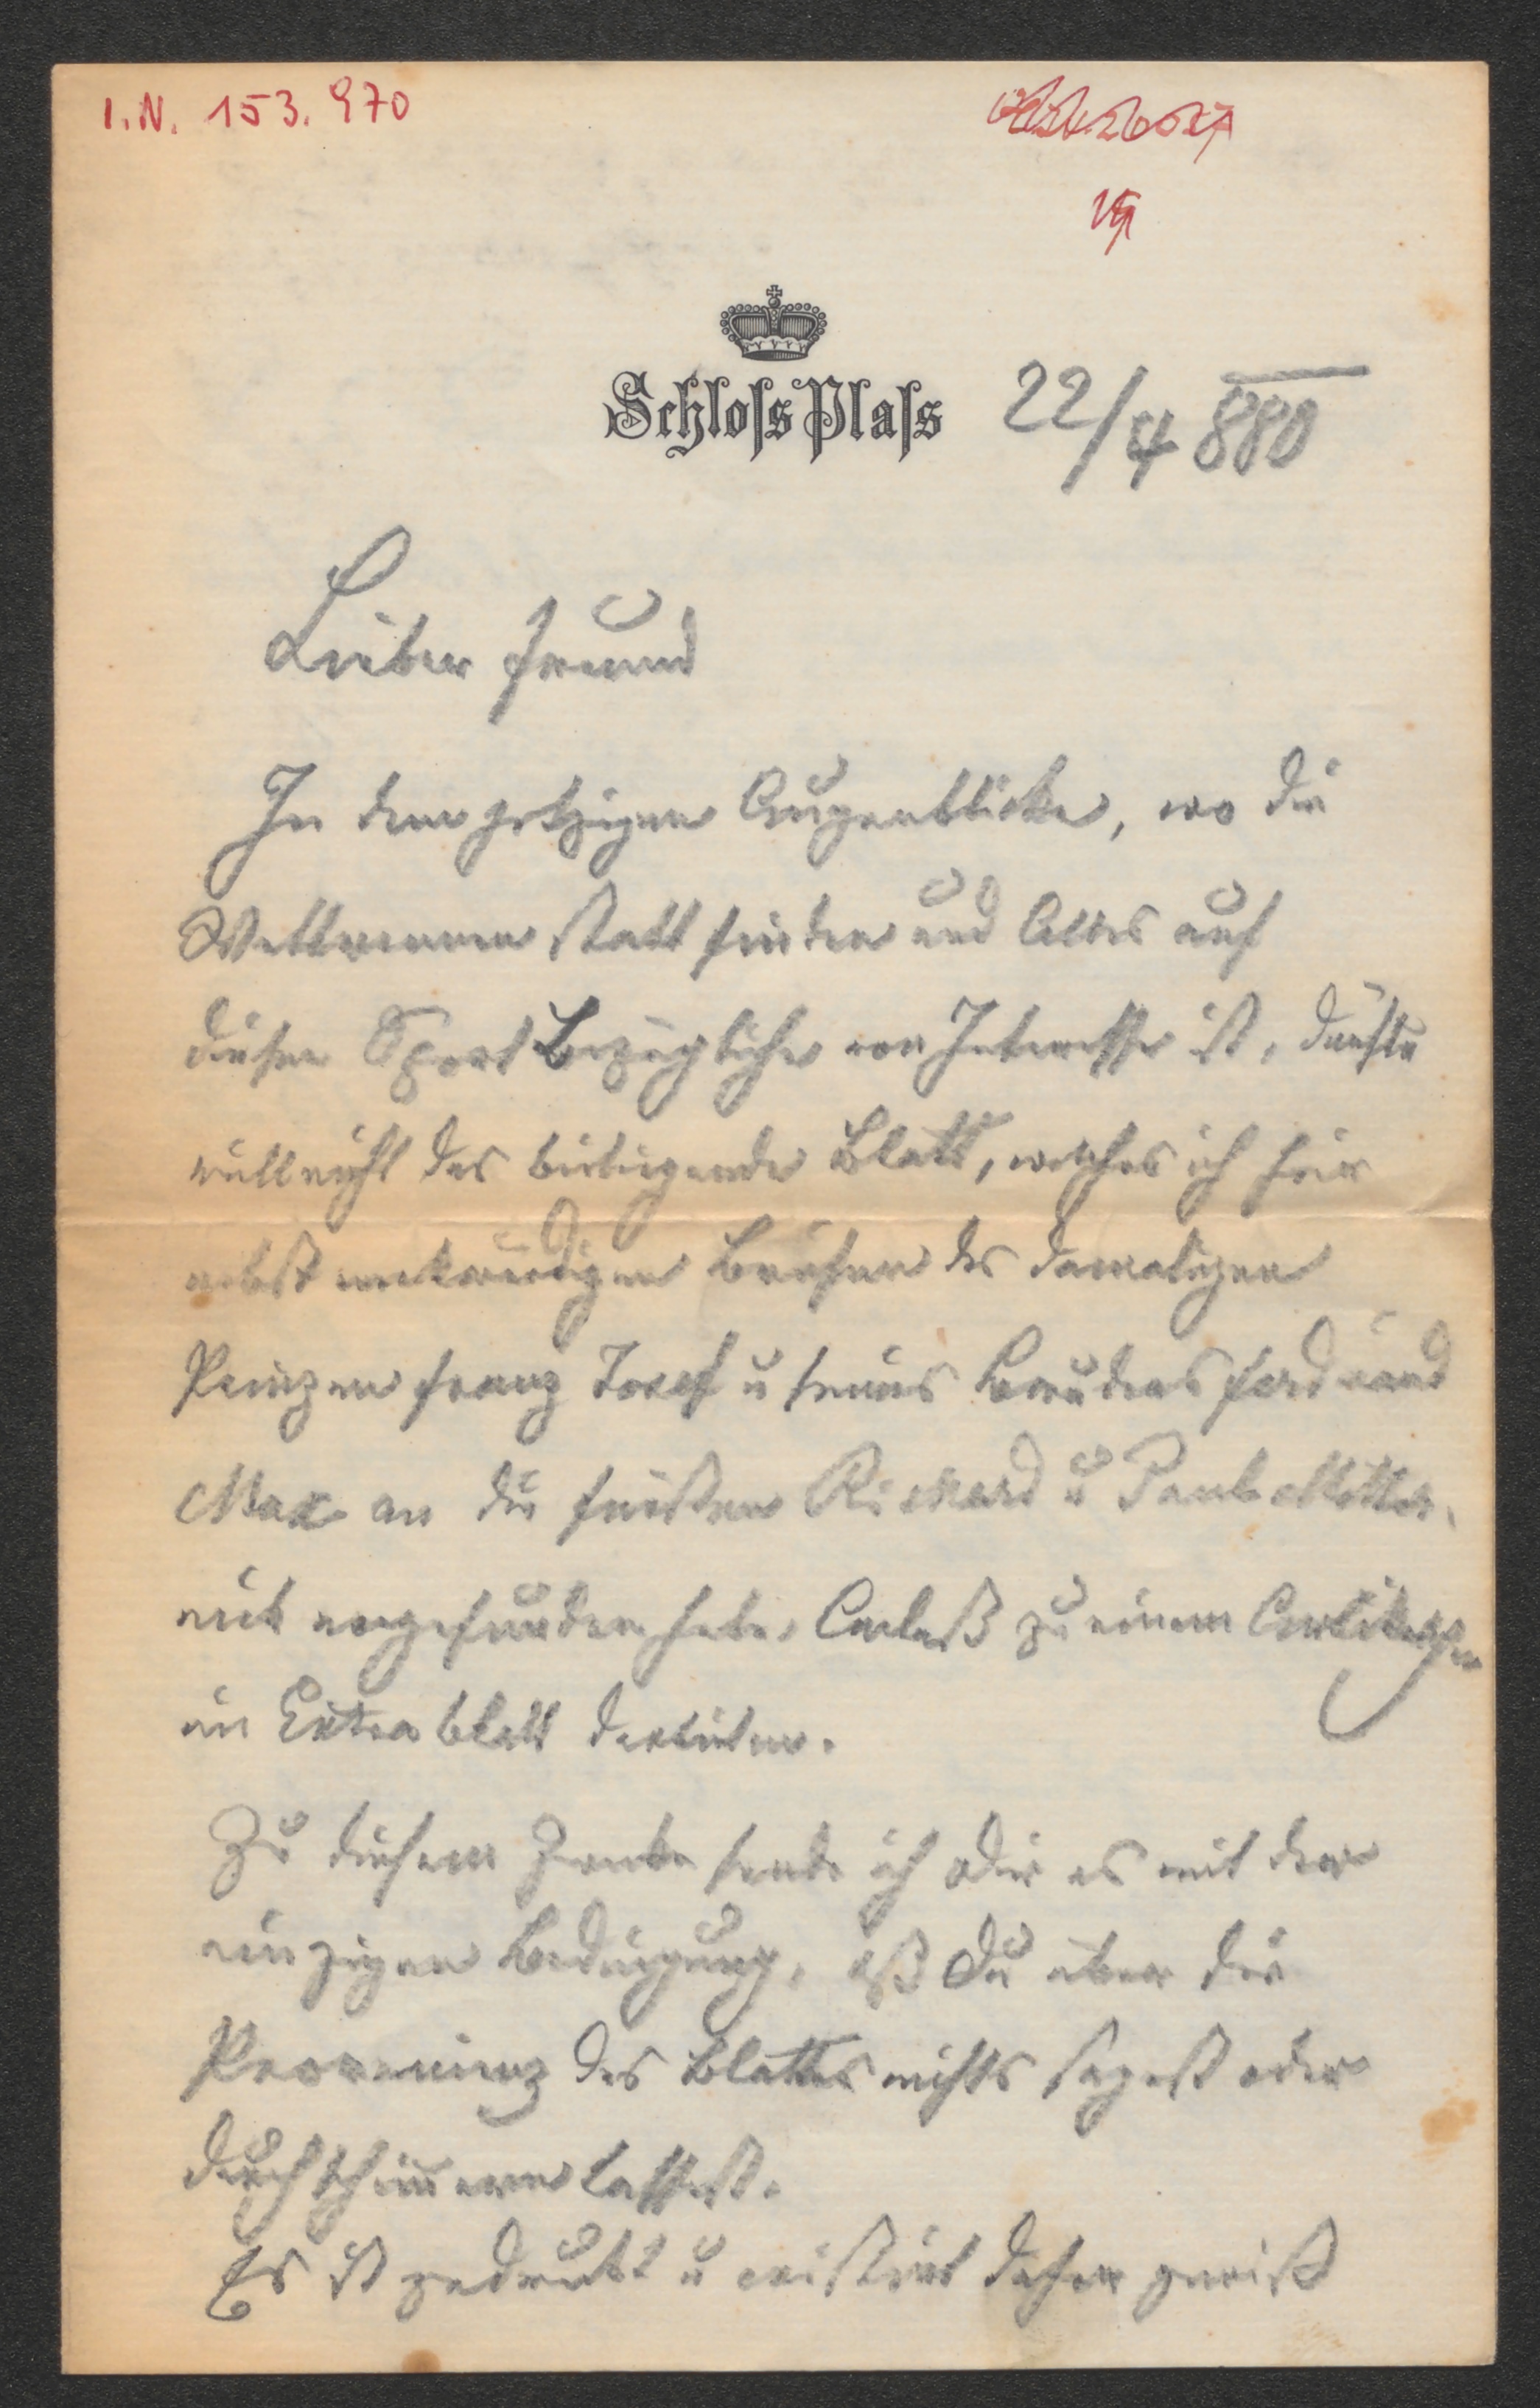 I.N. 153.970
Schloſs Plaſs 22/4 880
Lieber Freund
In dem jetzigen Augenblicke, wo die
Wettrennen statt finden und Alles auf
diesen Sport Bezügliche von Interesse ist, dürfte
vielleicht das beiliegende Blatt, welches ich hier
nebst merkwürdigen Briefen des damaligen
Prinzen Franz Josef u seines Bruders Ferdinand
Max an die Fürsten Richard u Paul Metter,
nich vorgefunden habe, Anlaß zu einem Artikelchen
im Extrablatt darbieten.
Zu diesem Zwecke sende ich Dir es mit der
einzigen Bedingung, daß Du über die
Provenienz des Blattes nichts sagest oder
durchschimmern lassest.
Es ist gedruckt u existirt daher gewiß